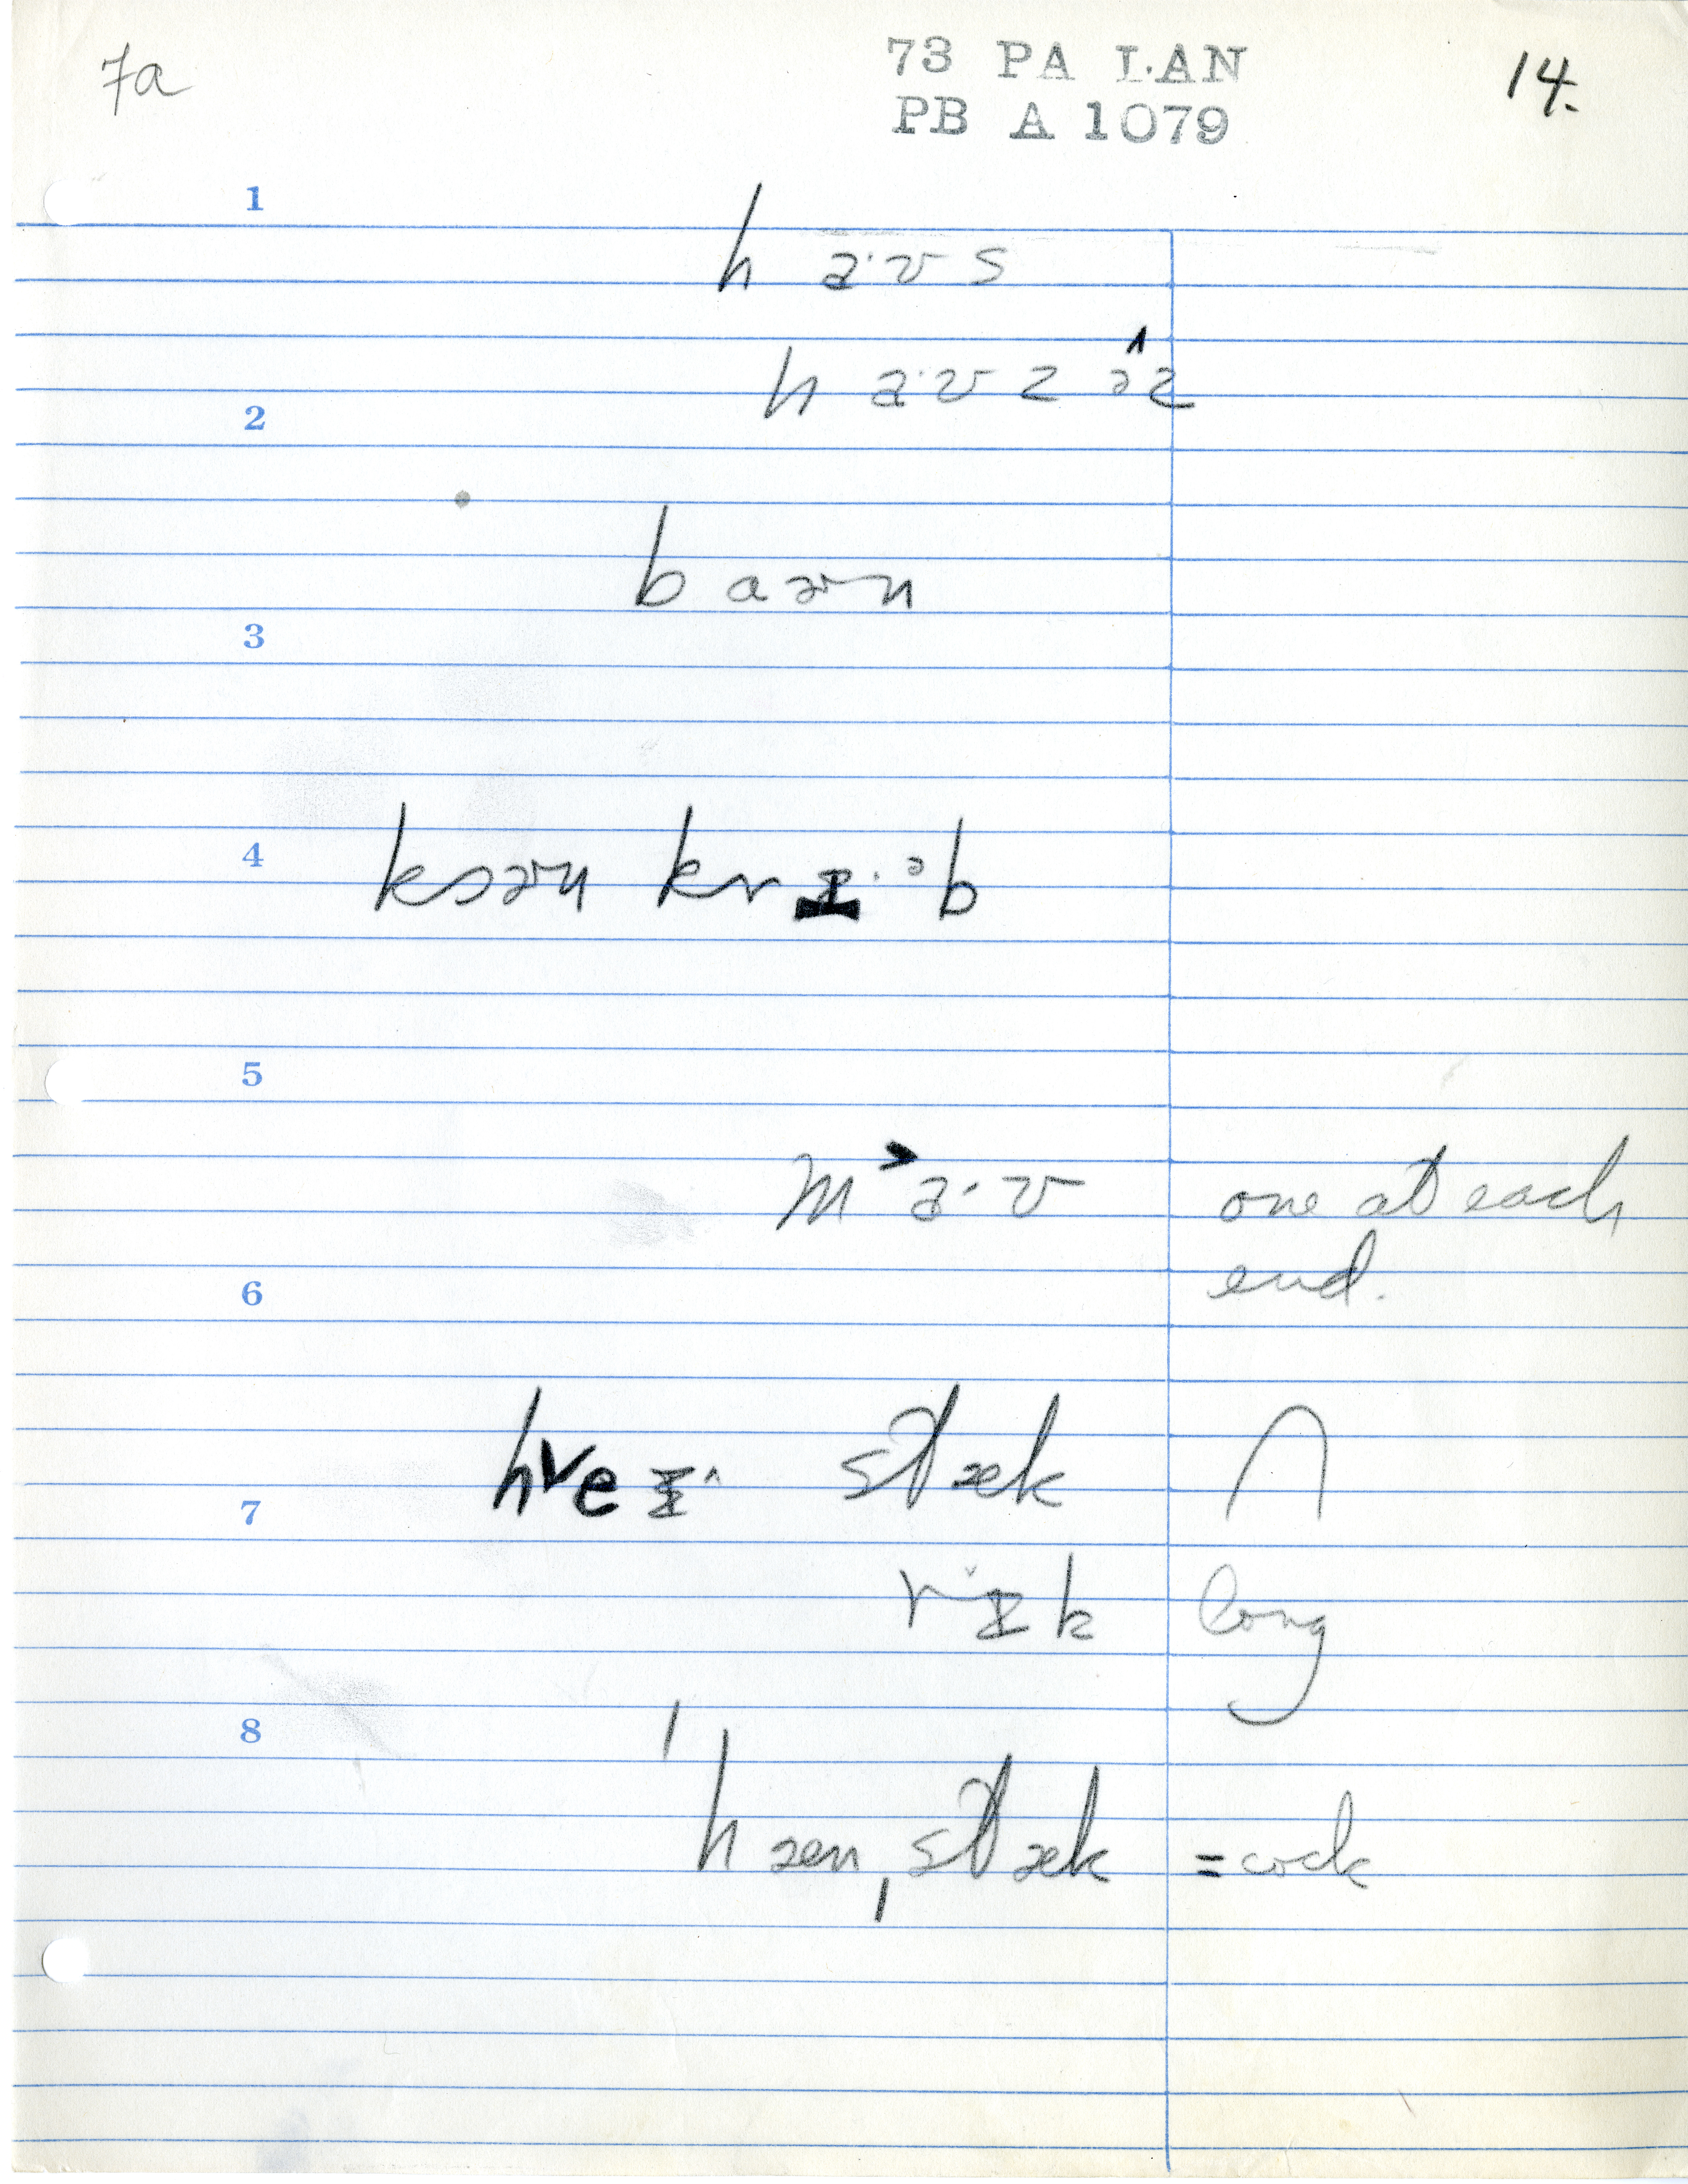 7a
73 PA LAN
PB A 1079
14.
1
h a·ʊ s
h a·ʊ z ə̂z
2
b aɚn
3
4
kɔɚn krɪ·ᵊb
5
m˃a·ʊ one at each
end.
6
h˅eɪ^ stæk ∩
7
rɪ˅k long
8
ˈhæn ˌstæk = cock